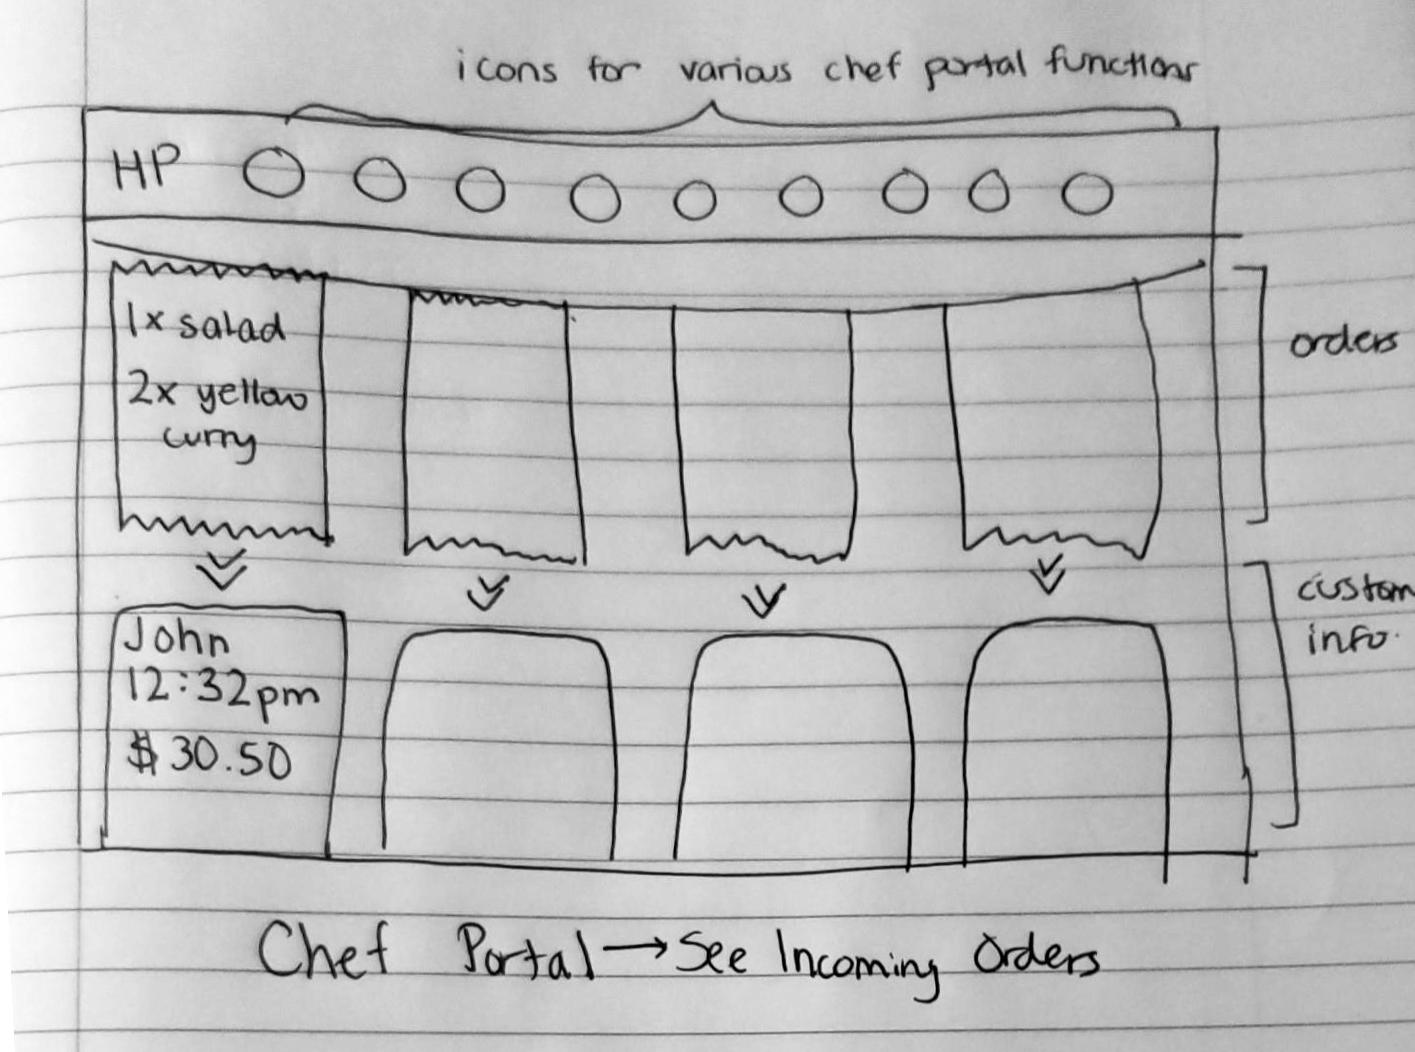 icons for various chef portal functions
HP
1x salad
2x yellow
curry
orders
John
12:32pm
$30.50
custom
info.
Chef Portal → See Incoming Orders